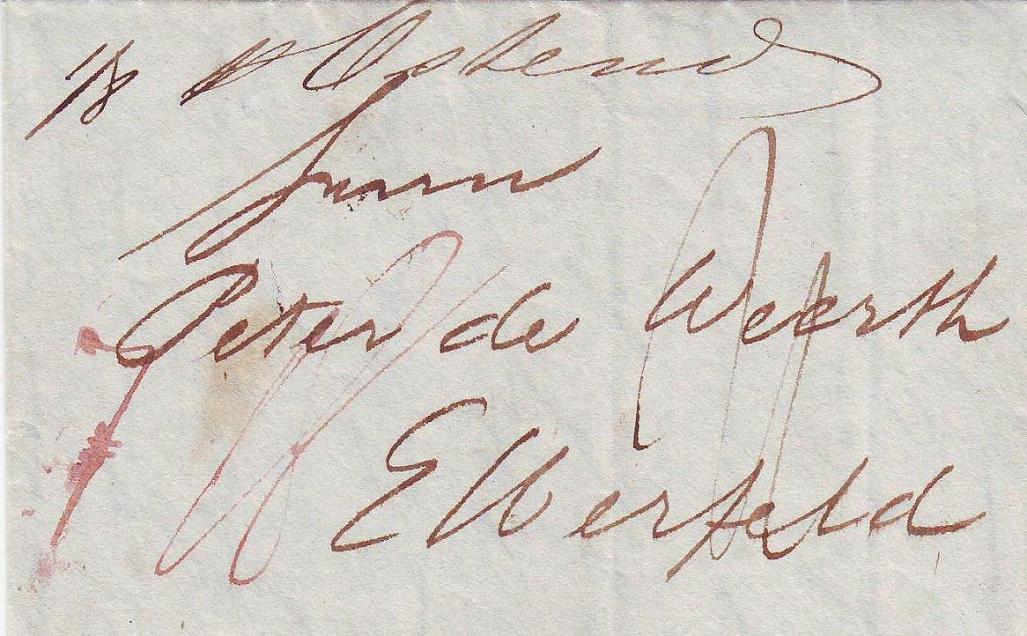 Ostend
Herrn
Peter de Weerth
Elberfeld